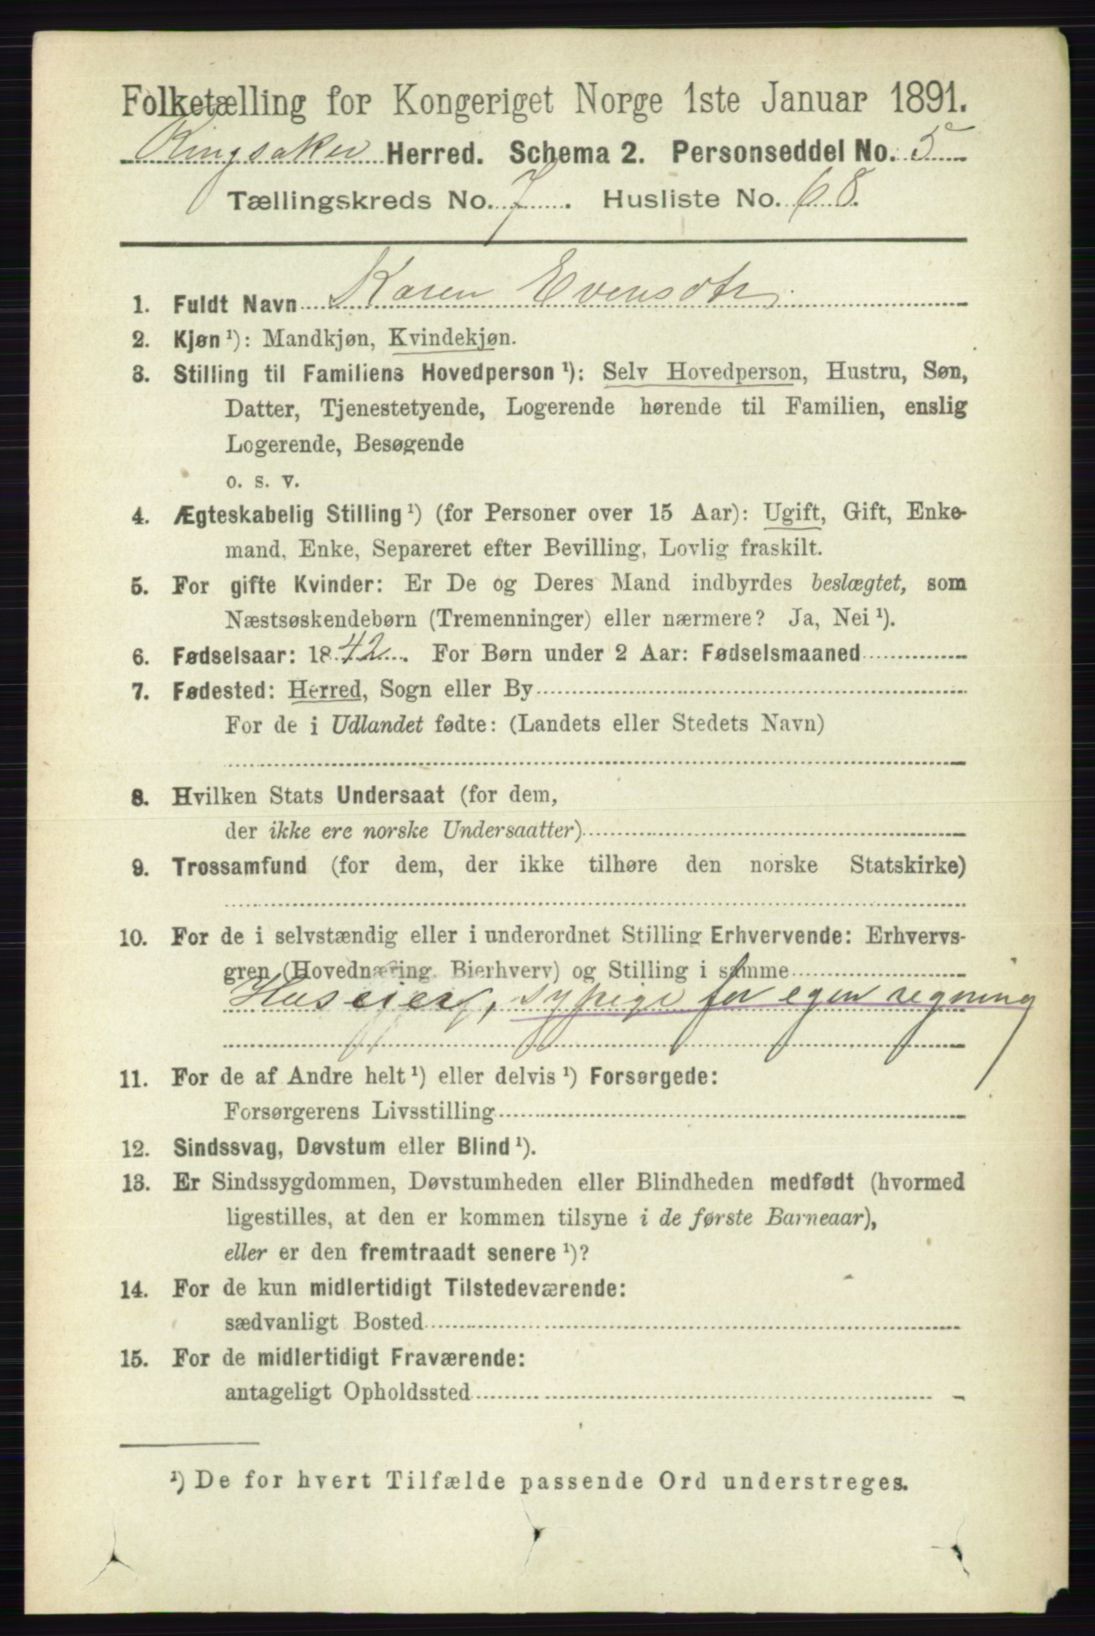 Folketælling for Kongeriget Norge 1ste Januar 1891.
Ringsaker Herred. Schema 2. Personseddel No. 5
Tællingskreds No. 7. Husliste No. 68.
1. Fuldt Navn Karen Evensdtr
2. Kjøn ¹): Mandkjøn, Kvindekjøn.
3. Stilling til Familiens Hovedperson ¹): Selv Hovedperson, Hustru, Søn,
Datter, Tjenestetyende, Logerende hørende til Familien, enslig
Logerende, Besøgende
o. s. v.
4. Ægteskabelig Stilling ¹) (for Personer over 15 Aar): Ugift, Gift, Enke-
mand, Enke, Separeret efter Bevilling, Lovlig fraskilt.
5. For gifte Kvinder: Er De og Deres Mand indbyrdes beslægtet, som
Næstsøskendebørn (Tremenninger) eller nærmere? Ja, Nei ¹).
6. Fødselsaar: 1842. For Børn under 2 Aar: Fødselsmaaned
7. Fødested: Herred, Sogn eller By
For de i Udlandet fødte: (Landets eller Stedets Navn)
8. Hvilken Stats Undersaat (for dem,
der ikke ere norske Undersaatter)
9. Trossamfund (for dem, der ikke tilhøre den norske Statskirke)
10. For de i selvstændig eller i underordnet Stilling Erhvervende: Erhvervs-
gren (Hovednæring, Bierhverv) og Stilling i samme
Huseier, sypige for egen regning
11. For de af Andre helt ¹) eller delvis ¹) Forsørgede:
Forsørgerens Livsstilling
12. Sindssvag, Døvstum eller Blind ¹).
13. Er Sindssygdommen, Døvstumheden eller Blindheden medfødt (hvormed
ligestilles, at den er kommen tilsyne i de første Barneaar),
eller er den fremtraadt senere ¹)?
14. For de kun midlertidigt Tilstedeværende:
sædvanligt Bosted
15. For de midlertidigt Fraværende:
antageligt Opholdssted
¹) De for hvert Tilfælde passende Ord understreges.